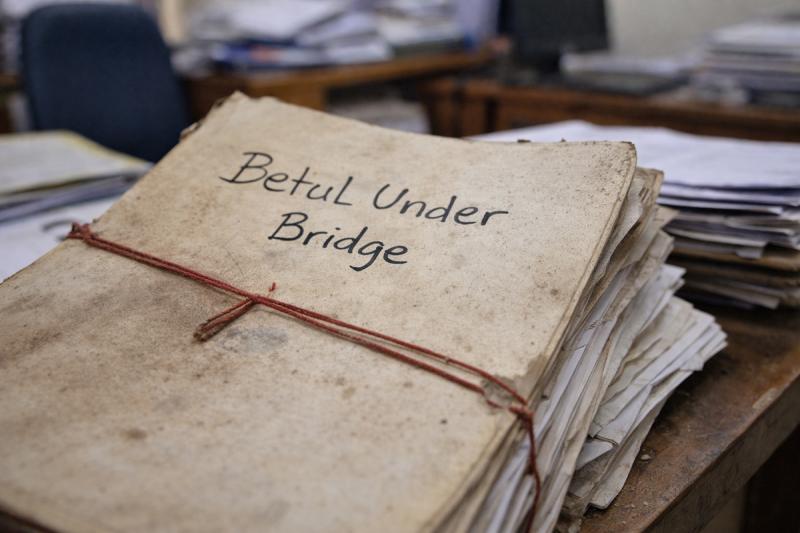 Betul Under
Bridge